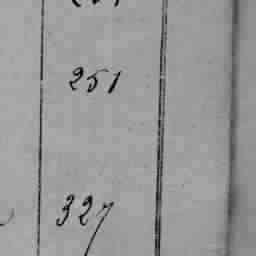 251
327